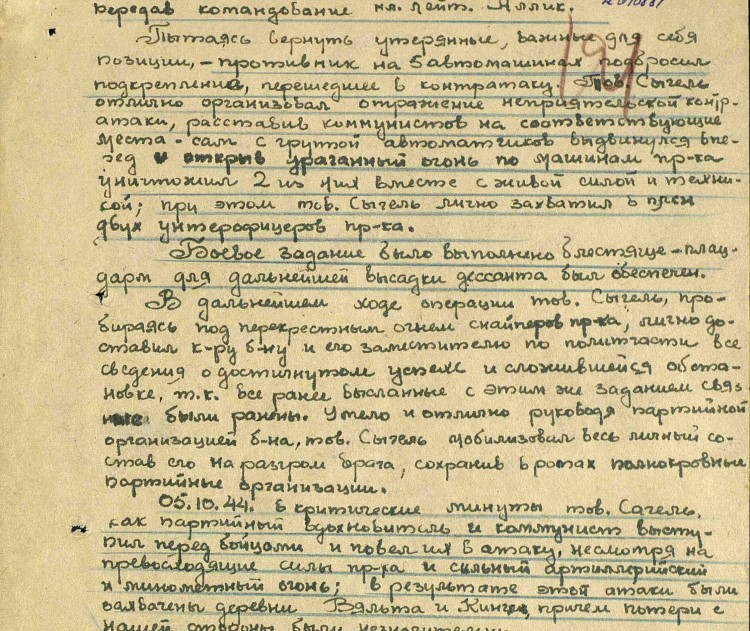 передав командование мл. лейт. Яллик.
Пытаясь вернуть утерянные, важные для себя
позиции, - противник на 5 автомашинах подбросил
подкрепление, перешедшее в контратаку. Тов. Сыгель
отлично организовал отражение неприятельской контр-
атаки, расставив коммунистов на соответствующие
места - сам с групой автоматчиков выдвинулся впе-
ред и открыв ураганный огонь по машинам пр-ка
уничтожил 2 из них вместе с живой силой и техни-
кой; при этом тов. Сыгель лично захватил в плен
двух унтерофицеров пр-ка.
Боевое задание было выполнено блестяще - плац-
дарм для дальнейшей высадки дессанта был обеспечен.
В дальнейшем ходе операции тов. Сыгель, про-
бираясь под перекрестным огнем снайперов пр-ка, лично до-
ставил к-ру б-ну и его заместителю по политчасти все
сведения о достигнутом успехе и сложившейся обста-
новке, т.к. все ранее высланные с этим же заданием связ-
ные были ранены. Умело и отлично руководя партийной
организацией б-на, тов. Сыгель мобилизовал весь личный со-
став его на разгром врага, сохранив в ротах полнокровные
партийные организации.
05.10.44. в критические минуты тов. Сагель,
как партийный вдохновитель и коммунист высту-
пил перед бойцами и повел их в атаку, несмотря на
превосходящие силы пр-ка и сильный артиллерийский
и минометный огонь; в результате этой атаки были
захвачены деревни Вяльта и причем потери с
нашей стороны были